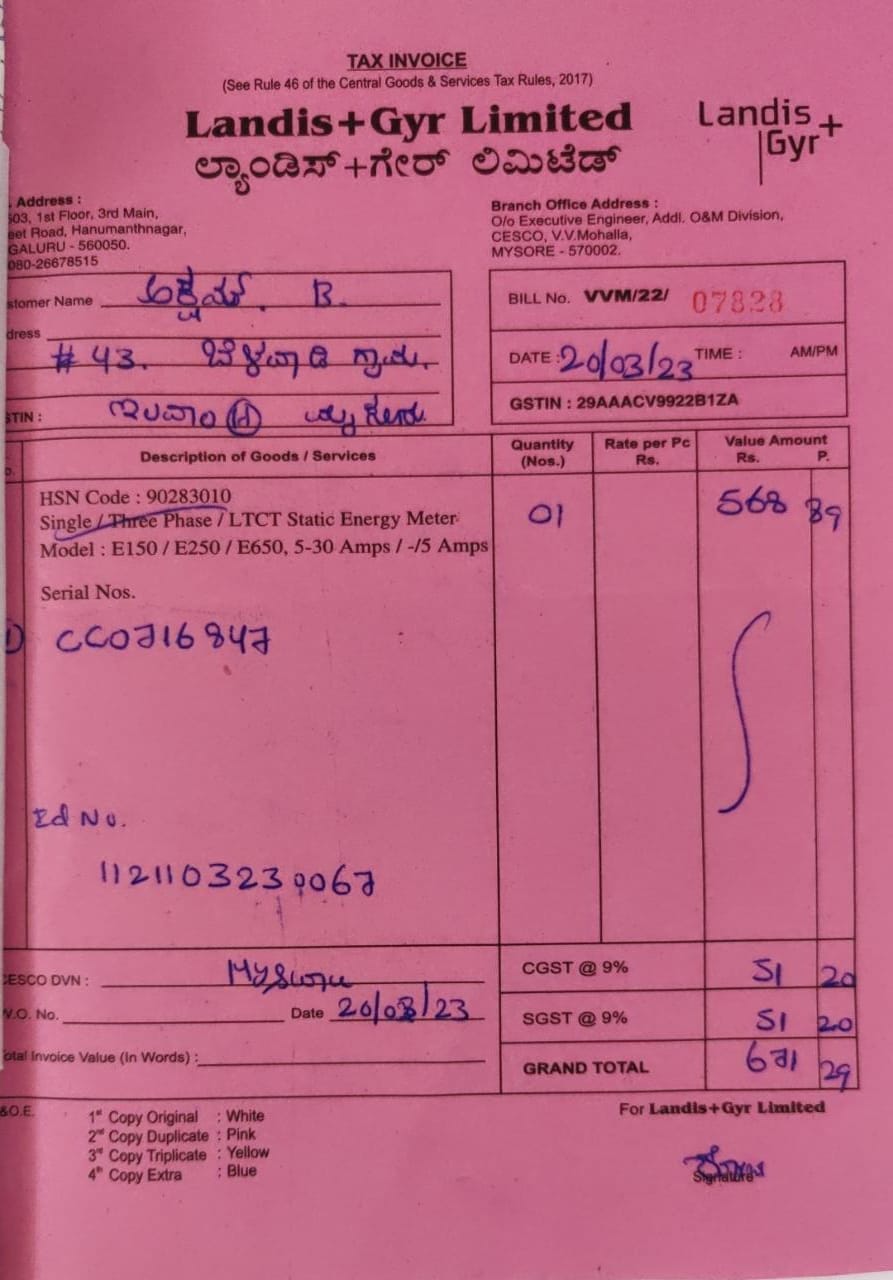 TAX INVOICE
(See Rule 46 of the Central Goods & Services Tax Rules, 2017)
Landis+Gyr Limited
ಲ್ಯಾಂಡಿಸ್+ಗೇರ್ ಲಿಮಿಟೆಡ್
Landis
Gyr+
Address :
503, 1st Floor, 3rd Main,
eet Road, Hanumanthnagar,
GALURU - 560050.
080-26678515
Branch Office Address :
O/o Executive Engineer, Addl. O&M Division,
CESCO, V.V.Mohalla,
MYSORE - 570002.
stomer Name B.
dress
# 43.
STIN :
BILL No. VVM/22/ 07828
DATE : 20/03/23 TIME : AM/PM
GSTIN : 29AAACV9922B1ZA
Description of Goods / Services Quantity (Nos.) Rate per Pc Rs. Value Amount Rs. P.
HSN Code : 90283010
Single / Three Phase / LTCT Static Energy Meter 01 568 89
Model : E150 / E250 / E650, 5-30 Amps / -/5 Amps
Serial Nos.
CC0716847
Ed No.
1121103230067
CESCO DVN :
W.O. No. Date 20/03/23
otal Invoice Value (In Words) :
CGST @ 9% 51 20
SGST @ 9% 51 20
GRAND TOTAL 671 29
&O.E.
1st Copy Original : White
2nd Copy Duplicate : Pink
3rd Copy Triplicate : Yellow
4th Copy Extra : Blue
For Landis+Gyr Limited
Signature